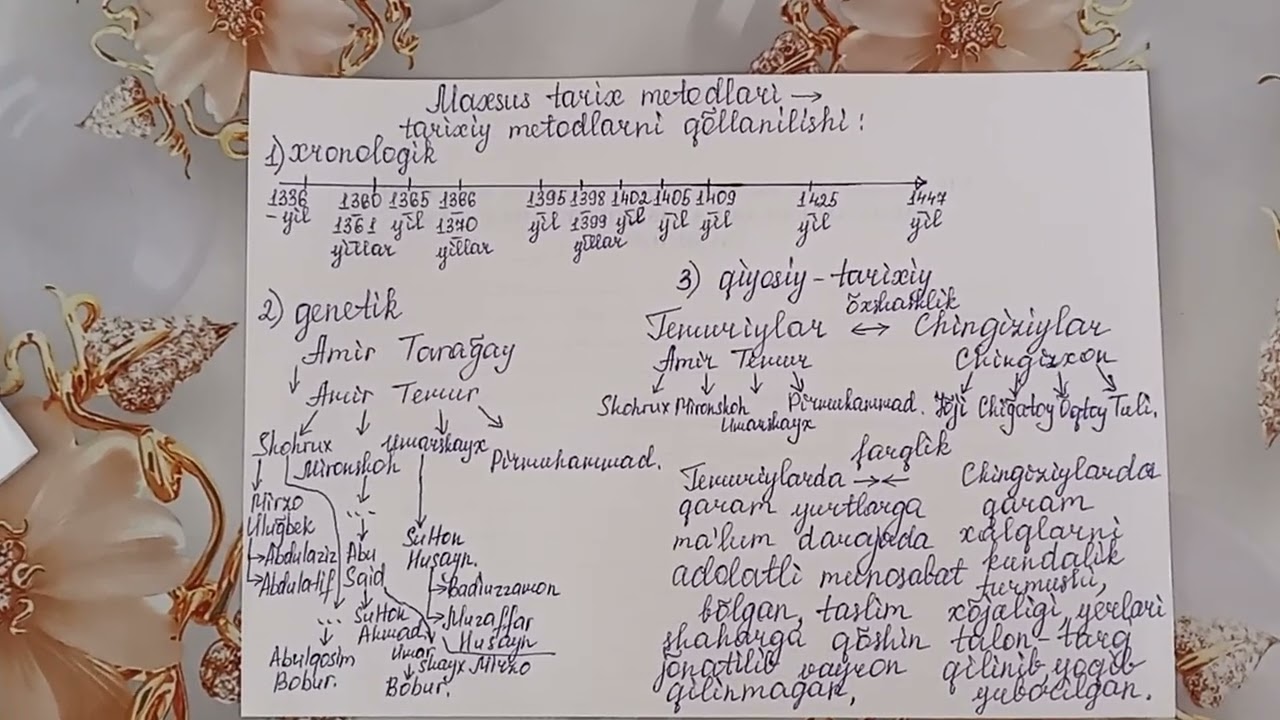 Maxsus tarix metodlari →
tarixiy metodlarni qōllanilishi :
1) xronologik
1336 - yil
1360 - 1361 yillar
1365 yil
1366 - 1370 yillar
1395 yil
1398 - 1399 yillar
1402 yil
1405 yil
1409 yil
1425 yil
1447 yil
2) genetik
Amir Tarağay
Amir Temur
Shohrux
Mironshoh
Umarshayx
Pirmuhammad.
Mirzo
Uluğbek
Abdulaziz
Abdulatif
...
Abulqosim
Bobur.
...
Abu
Said
Sulton
Ahmad
Umar
shayx Mirzo
Bobur.
Sulton
Husayn.
Badiuzzamon
Muzaffar
Husayn
3) qiyosiy - tarixiy
ōxshashlik
Temuriylar ↔ Chingiziylar
Amir Temur
Shohrux Mironshoh Umarshayx Pirmuhammad.
Chingizxon
Jōji Chiğatoy Ōqtoy Tuli.
farqlik
Temuriylarda →←
qaram yurtlarga
ma'lum darajada
adolatli munosabat
bōlgan, taslim
shaharga qōshin
jōnatilib vayron
qilinmagan,
Chingiziylarda
qaram
xalqlarni
kundalik
turmushi,
xōjaligi, yerlari
talon-taroj
qilinib, yoqib
yuborilgan.